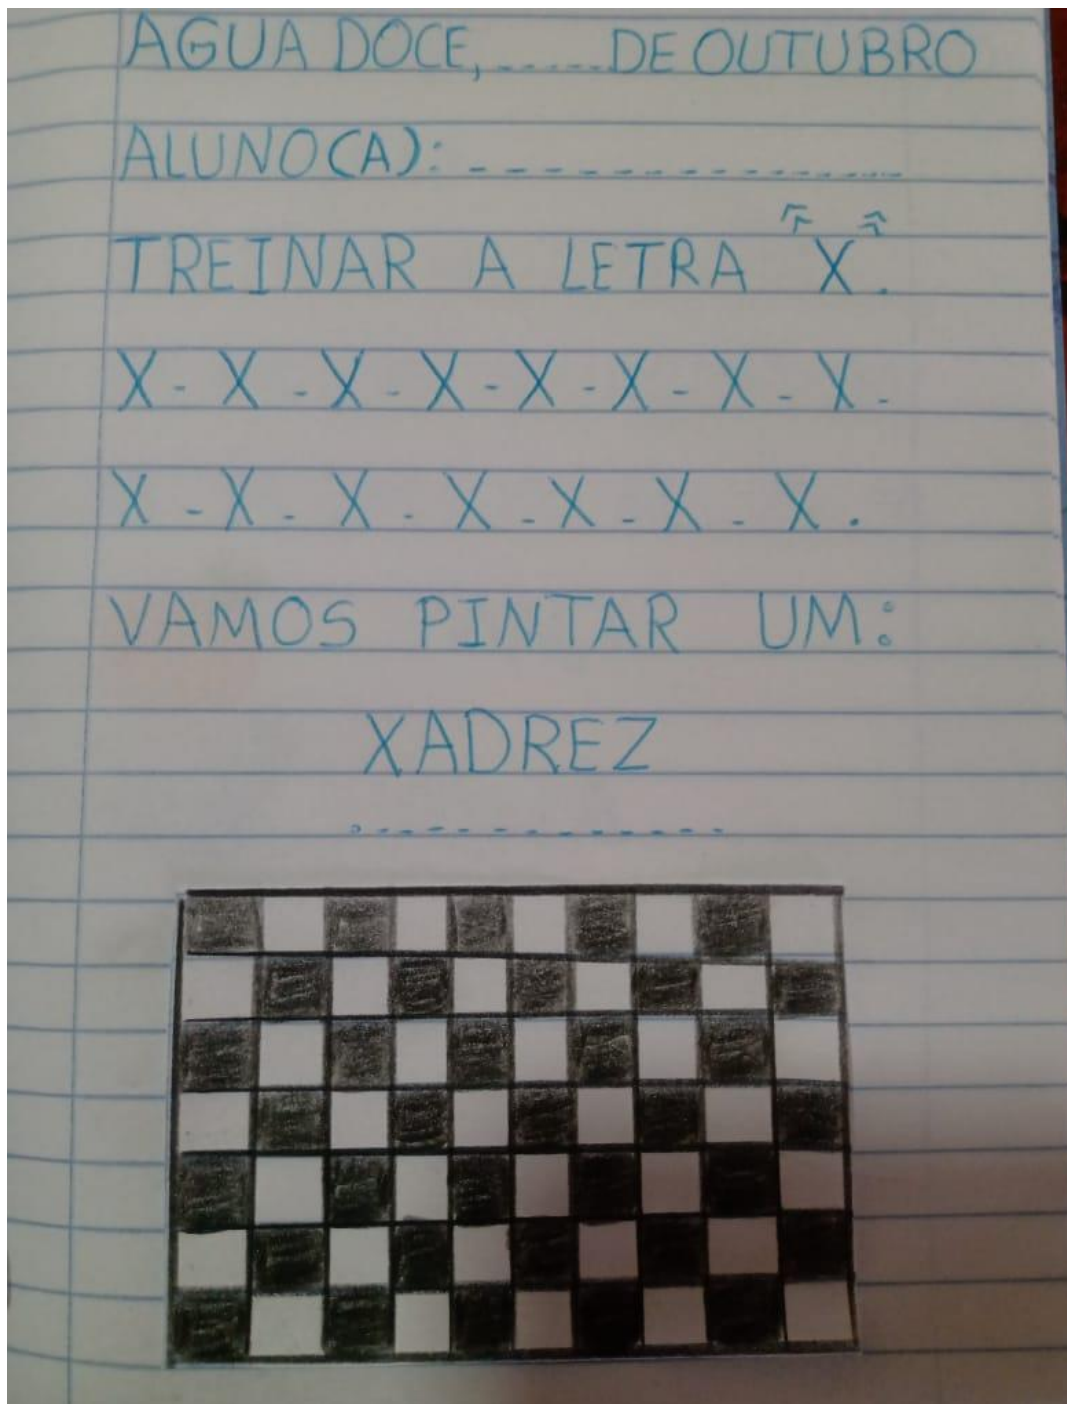 AGUA DOCE,......DE OUTUBRO
ALUNO(A): - - - - - - - - - - - - - - -
TREINAR A LETRA "X".
X - X - X - X - X - X - X - X -
X - X - X - X - X - X - X .
VAMOS PINTAR UM:
XADREZ
- - - - - - - - - - - - -